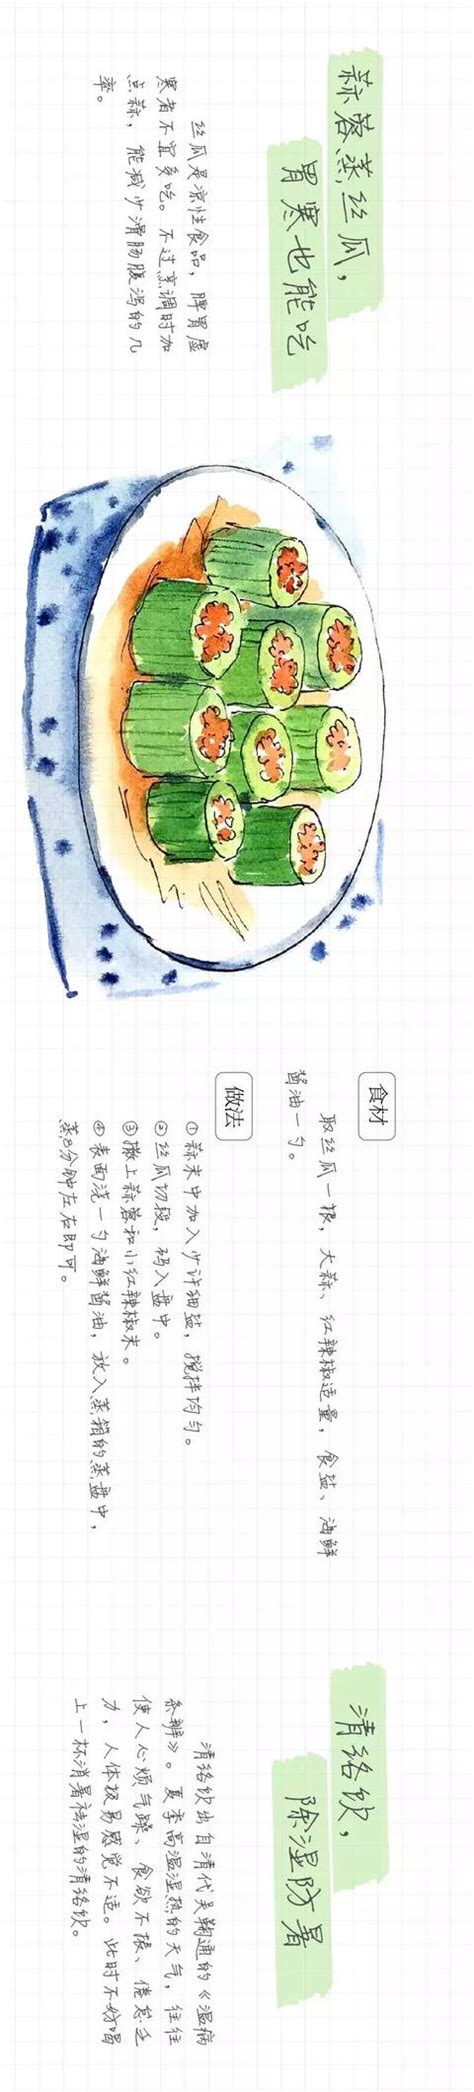 蒜蓉蒸丝瓜，
胃寒也能吃
丝瓜是凉性食品，脾胃虚
寒者不宜多吃。不过烹调时加
点蒜，能减少滑肠腹泻的几
率。
食材
取丝瓜一根，大蒜、红辣椒适量，食盐、海鲜
酱油一勺。
做法
①蒜末中加入少许细盐，搅拌均匀。
②丝瓜切段，码入盘中。
③撒上蒜蓉和小红辣椒末。
④表面浇一勺海鲜酱油，放入蒸箱的蒸盘中，
蒸8分钟左右即可。
清络饮，
除湿防暑
清络饮出自清代吴鞠通的《温病
条辨》。夏季高温湿热的天气，往往
使人心烦气躁、食欲不振、倦怠乏
力，人体极易感觉不适。此时不妨喝
上一杯消暑祛湿的清络饮。